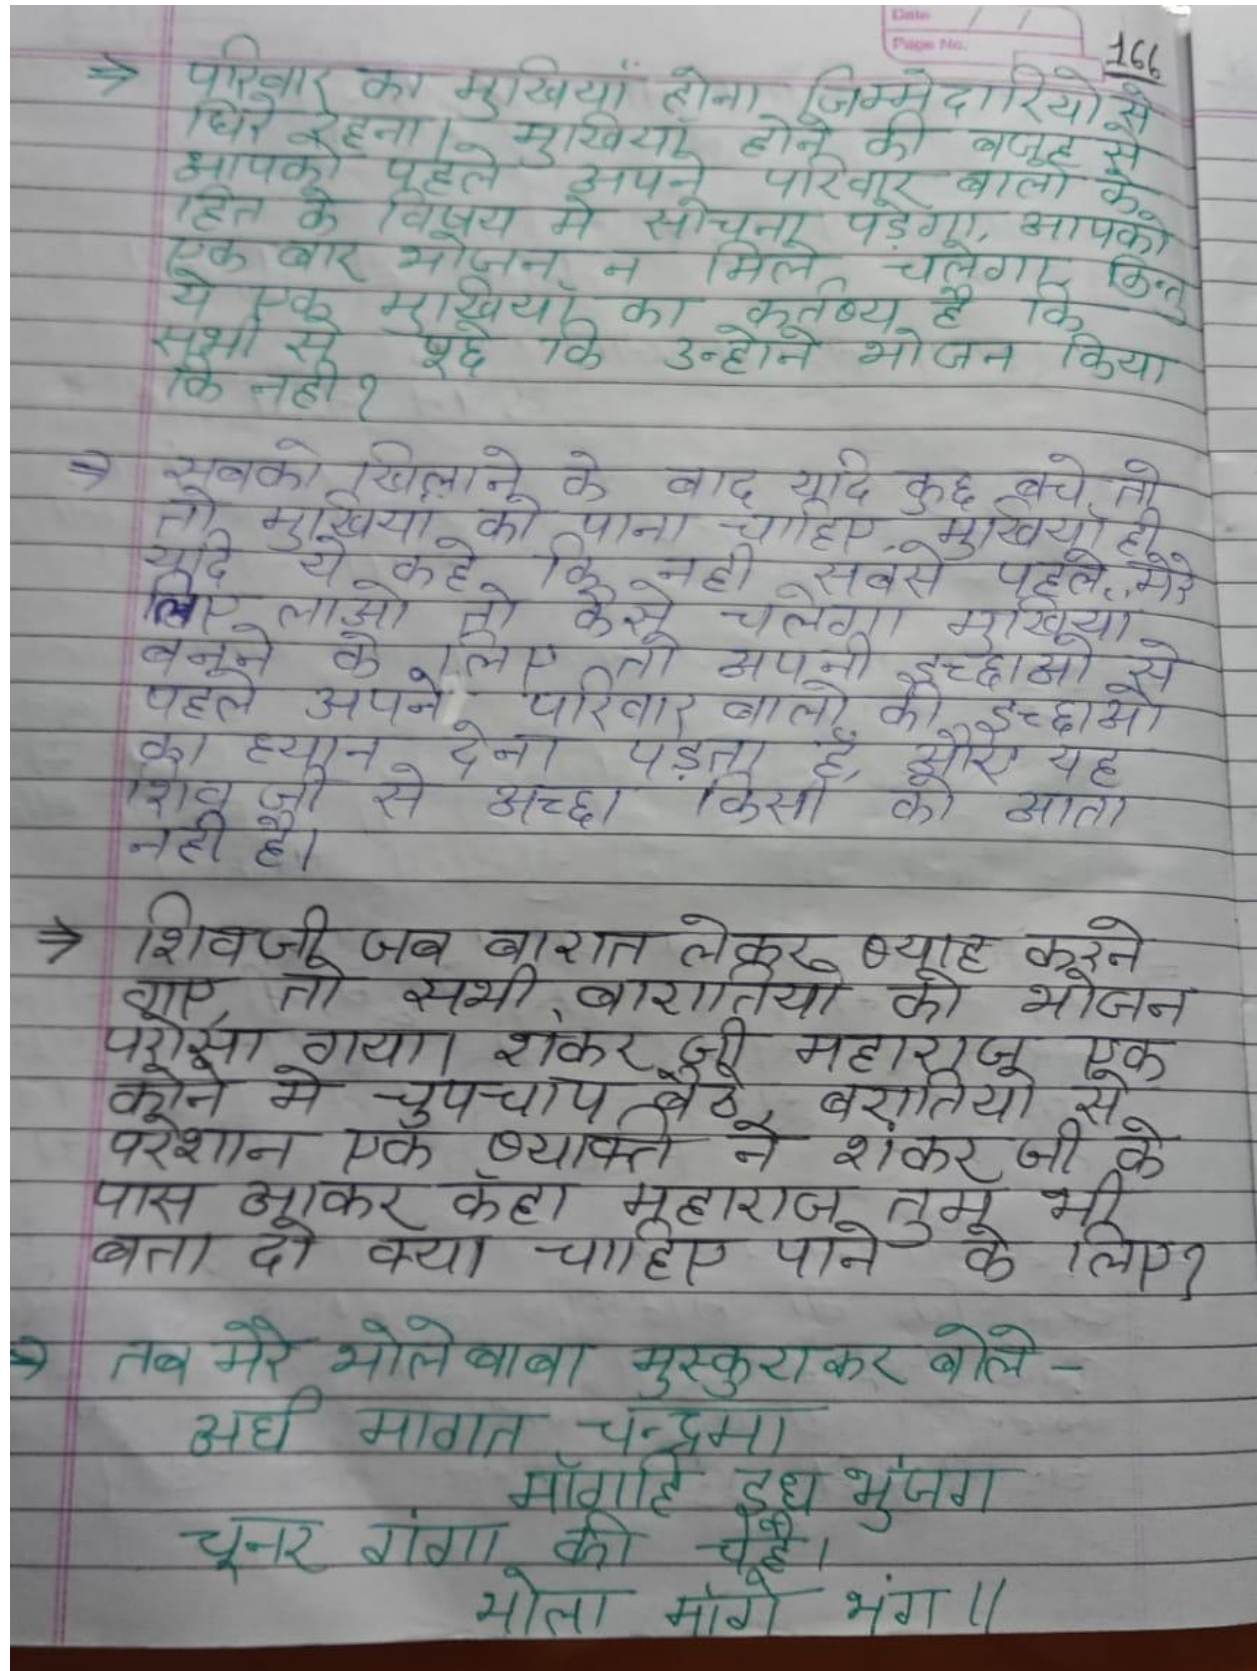 Date / /
Page No.
166
⇒ परिवार का मुखियाँ होना जिम्मेदारियो से
घिरे रहना। मुखियाँ होने की बजह से
आपको पहले अपने परिवार बालो के
हित के विषय मे सोचना पड़ेगा, आपको
एक बार भोजन न मिले चलेगा किन्तु
ये एक मुखियाँ का कर्तब्य है कि
सभी से पूछे कि उन्होने भोजन किया
कि नही?
⇒ सबको खिलाने के बाद यदि कुछ बचे तो
तो मुखिया को पाना चाहिए, मुखियाँ ही
यदि ये कहे कि नही सबसे पहले मेरे
लिए लाओ तो कैसे चलेगा मुखिया
बनने के लिए तो अपनी इच्छाओ से
पहले अपने परिवार बालो की इच्छाओ
का ध्यान देना पड़ता है, और यह
शिव जी से अच्छा किसी को आता
नही है।
⇒ शिवजी जब बारात लेकर ब्याह करने
गए, तो सभी बारातियो को भोजन
परोसा गया। शंकर जी महाराज एक
कोने मे चुपचाप बैठे, बरातियो से
परेशान एक ब्यक्ति ने शंकर जी के
पास आकर कहा महाराज तुम भी
बता दो क्या चाहिए पाने के लिए?
⇒ तब मेरे भोलेबाबा मुस्कुराकर बोले -
अर्घ मागत चन्द्रमा
माँगहि दुध भुंजग
चूनर गंगा की चहै।
भोला माँगे भंग॥